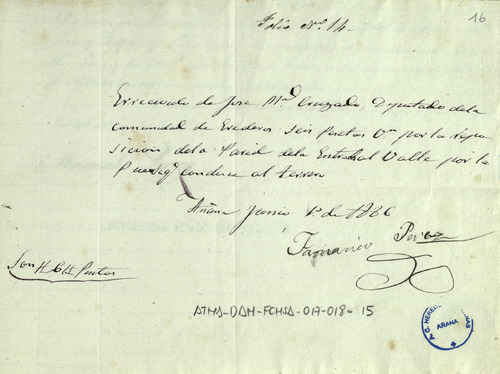 Folio Nº 14.
16
Errecivido de Jose Mª Cruzado Diputado dela
Comunidad de Erederos Seis Pesetas por la repo
sicion dela Pared dela Entrada al Valle por la
Puerta qe conduce al terrero
Añana Junio 1º de 1866
Perez
Son 6 Pesetas
ATHA-DAH-FCHSA-017-018-15
AÑANA